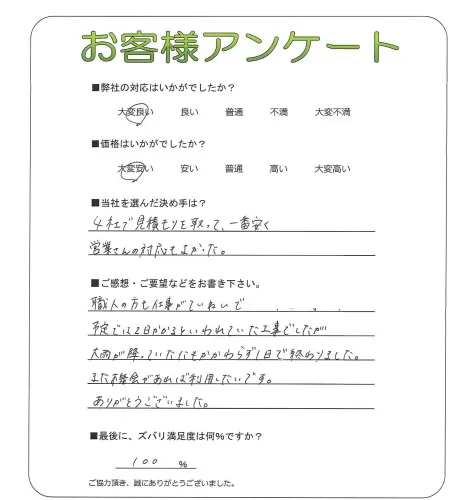 お客様アンケート
■弊社の対応はいかがでしたか?
大変良い 良い 普通 不満 大変不満
■価格はいかがでしたか?
大変安い 安い 普通 高い 大変高い
■当社を選んだ決め手は?
4社で見積もりを取って、一番安く
営業さんの対応もよかった。
■ご感想・ご要望などをお書き下さい。
職人の方も仕事がていねいで
予定では2日かかるといわれていた工事でしたが
大雨が降っていたにもかかわらず1日で終わりました。
また機会があれば利用したいです。
ありがとうございました。
■最後に、ズバリ満足度は何%ですか?
100 %
ご協力頂き、誠にありがとうございました。